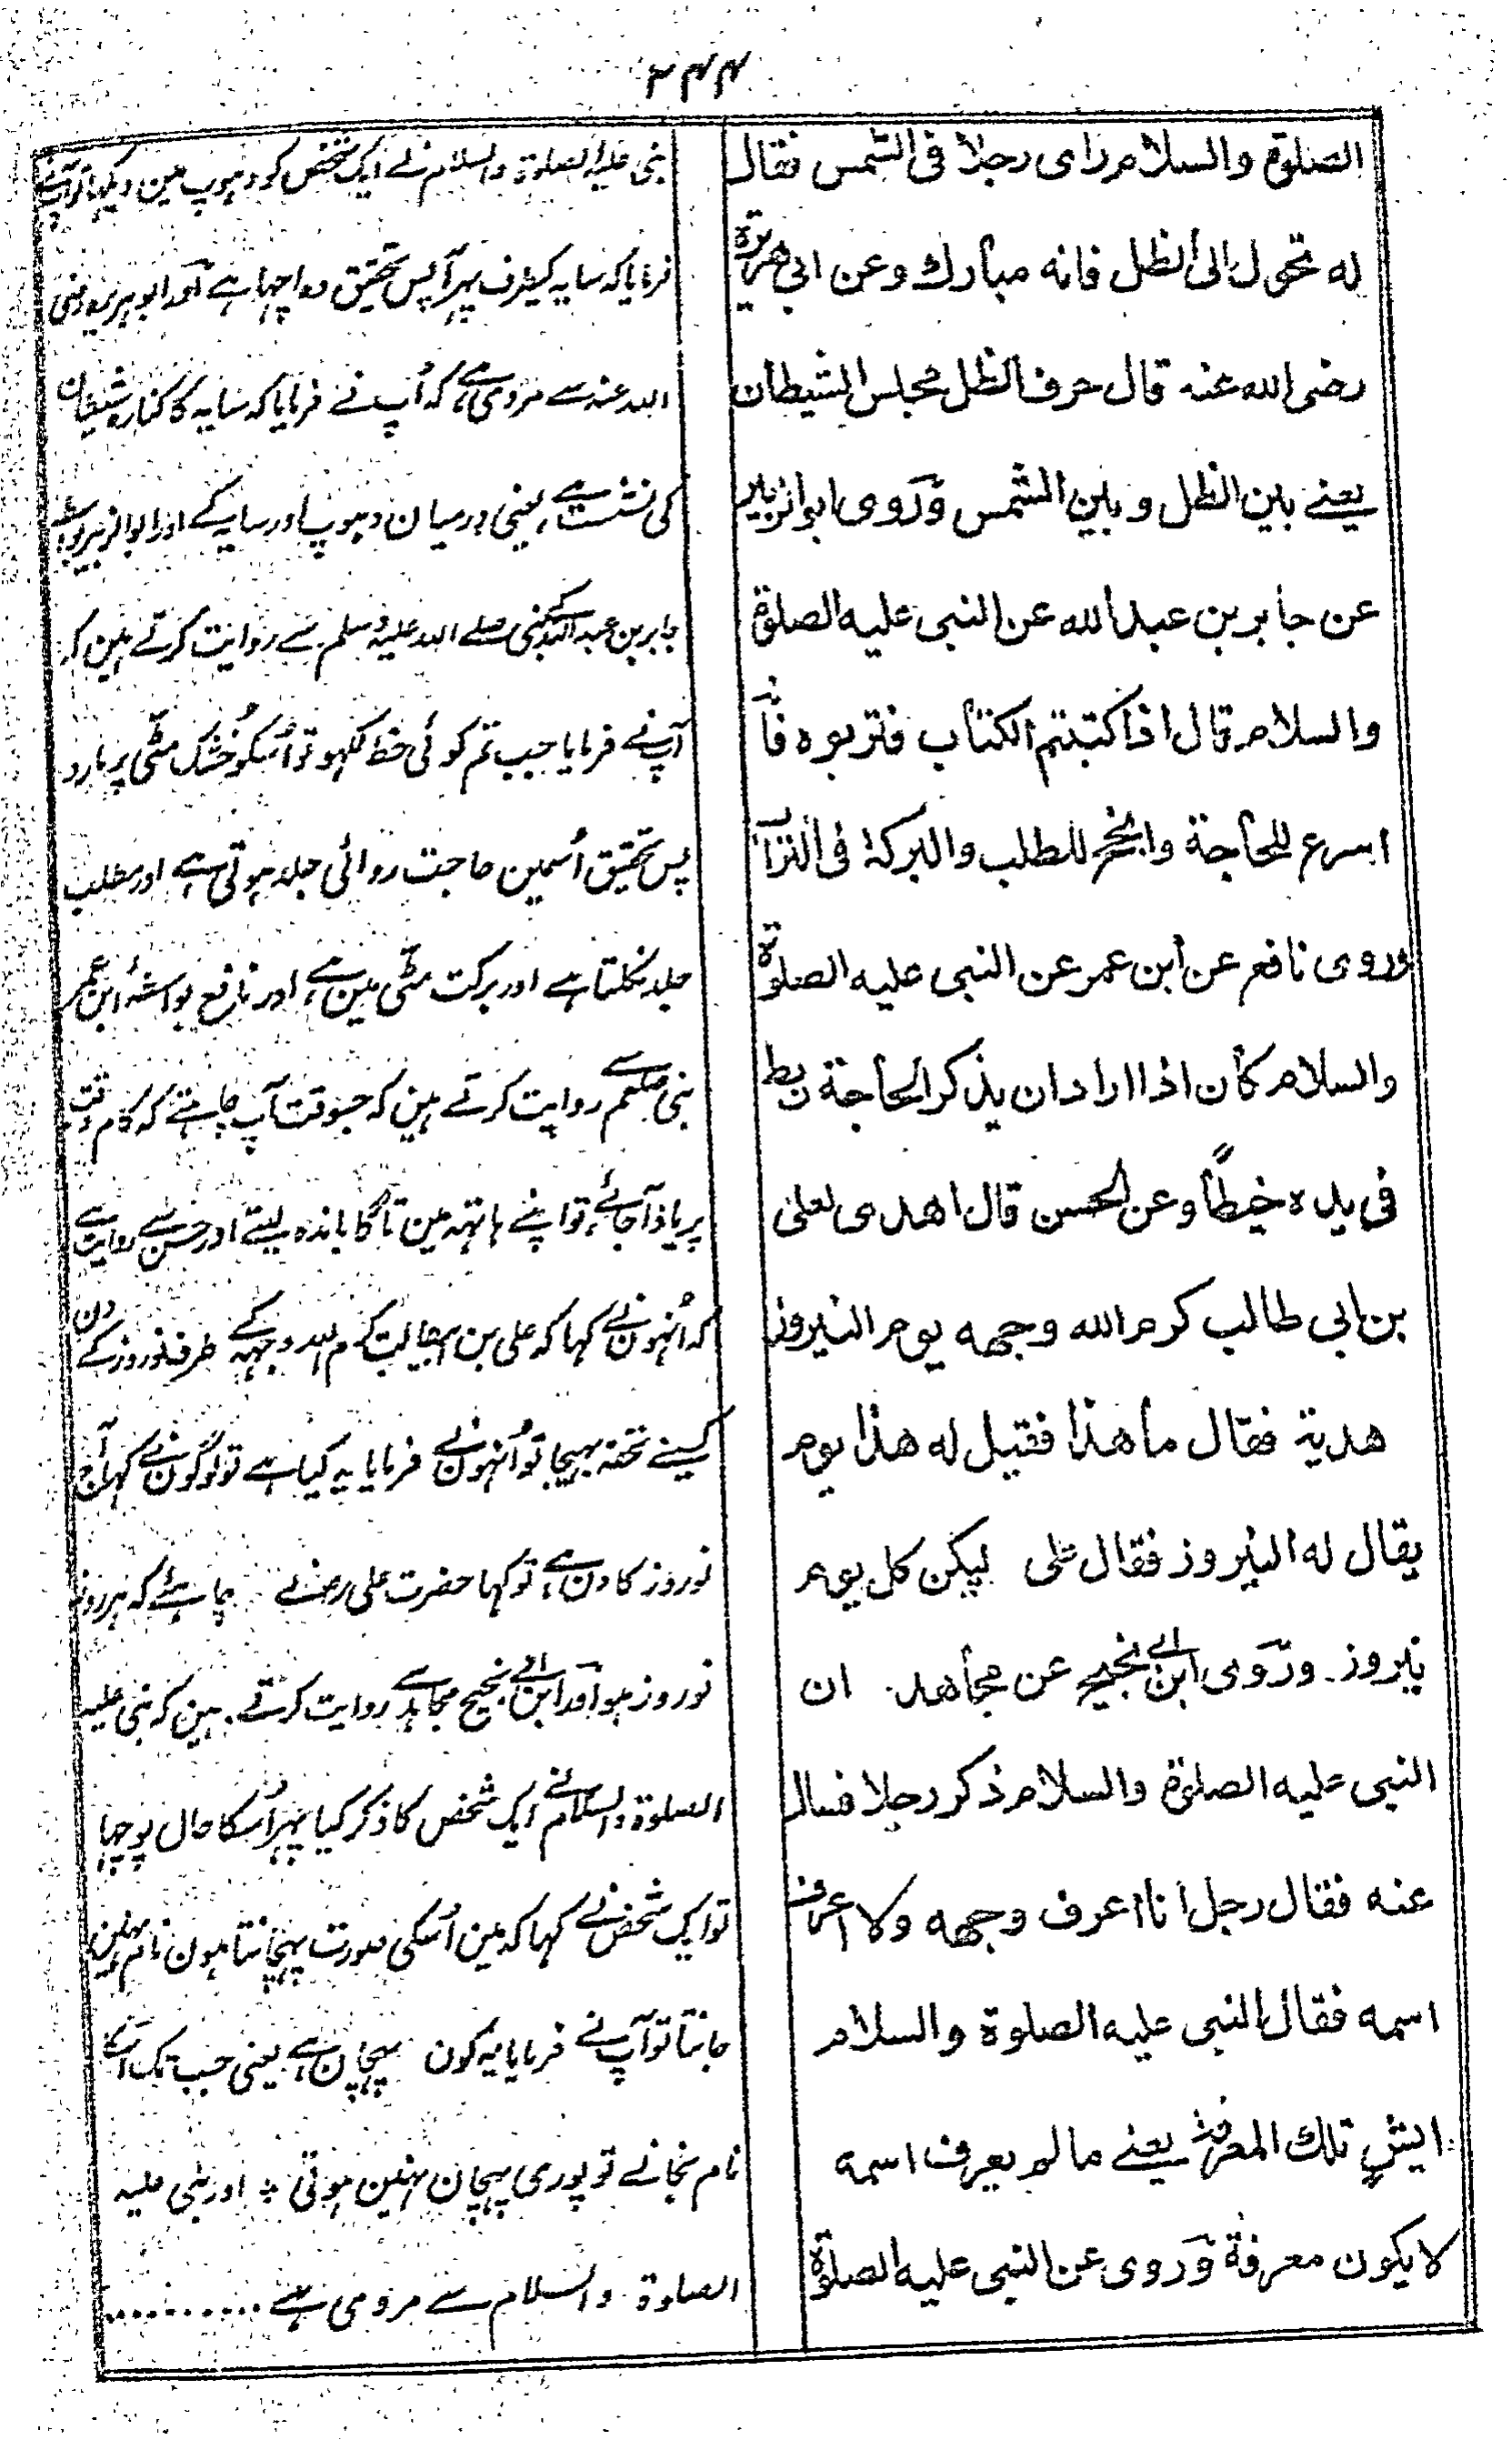 ۲۴۴
الصلوة والسلام رای رجلا فی الشمس فقال
له تحول الی الظل فانه مبارك وعن ابی هریرة
رضی الله عنه قال حرف الظل مجلس الشیطان
یعنے بین الظل و بین الشمس وروی ابوالزبیر
عن جابر بن عبد الله عن النبی علیه الصلوة
والسلام قال اذا کتبتم الکتاب فتربوه فانه
اسرع للحاجة وانجح للطلب والبرکة فی التراب
وروی نافع عن ابن عمر عن النبی علیه الصلوة
والسلام کان اذا اراد ان یذکر الحاجة ربط
فی یده خیطًا وعن الحسن قال اهدی لعلی
بن ابی طالب کرم الله وجهه یوم النیروز
هدیة فقال ما هذا فقیل له هذا یوم
یقال له النیروز فقال علی لیکن کل یوم
نیروز۔ وروی ابن ابی نجیح عن مجاهد۔ ان
النبی علیه الصلوة والسلام ذکر رجلا فسال
عنه فقال رجل انا اعرف وجهه ولا اعرف
اسمه فقال النبی علیه الصلوة والسلام
ایش تلك المعرفة یعنے ما لم یعرف اسمه
لا یکون معرفة وروی عن النبی علیه الصلوة
نبی علیہ الصلوۃ والسلام نے ایک شخص کو دہوپ مین دیکہا تو آپنے
فرمایا کہ سایہ کیطرف پہر آپس تحقیق وہ اچہا ہے اور ابو ہریرہ رضی
اللہ عنہ سے مروی ہے کہ آپ نے فرمایا کہ سایہ کا کنارہ شیطان
کی نشست ہے یعنی درمیان دہوپ اور سایہ کے اور ابوالزبیر بواسطہ
جابر بن عبد اللہ کے نبی صلے اللہ علیہ وسلم سے روایت کرتے ہین کہ
آپ نے فرمایا جب تم کوئی خط لکہو تو اُسکو خشک مٹی پر مارو
پس تحقیق اُسمین حاجت روائی جلد ہوتی ہے اور مطلب
جلد نکلتا ہے اور برکت مٹی مین ہے اور نافع بواسطہ ابن عمر
نبی صلعم سے روایت کرتے ہین کہ جسوقت آپ چاہتے کہ کام وقت
پر یاد آجائے تو اپنے ہاتہہ مین تاگا باندہ لیتے اور حسن سے روایت ہے
کہ اُنہون نے کہا کہ علی بن ابیطالب کرم اللہ وجہہ کے طرف نوروز کے دن
کسینے تحفہ بہیجا تو اُنہون نے فرمایا یہ کیا ہے تو لوگون نے کہا آج
نوروز کا دن ہے تو کہا حضرت علی رضنے چاہئے کہ ہر روز
نوروز ہو اور ابن ابی نجیح مجاہد سے روایت کرتے ہین کہ نبی علیہ
الصلوۃ والسلام نے ایک شخص کا ذکر کیا پہر اُسکا حال پوچہا
تو ایک شخص نے کہا کہ مین اُسکی صورت پہچانتا ہون نام نہین
جانتا تو آپ نے فرمایا یہ کون پہچان ہے یعنی جب تک اُسکا
نام نجانے تو پوری پہچان نہین ہوتی ؞ اور نبی علیہ
الصلوۃ والسلام سے مروی ہے ..........